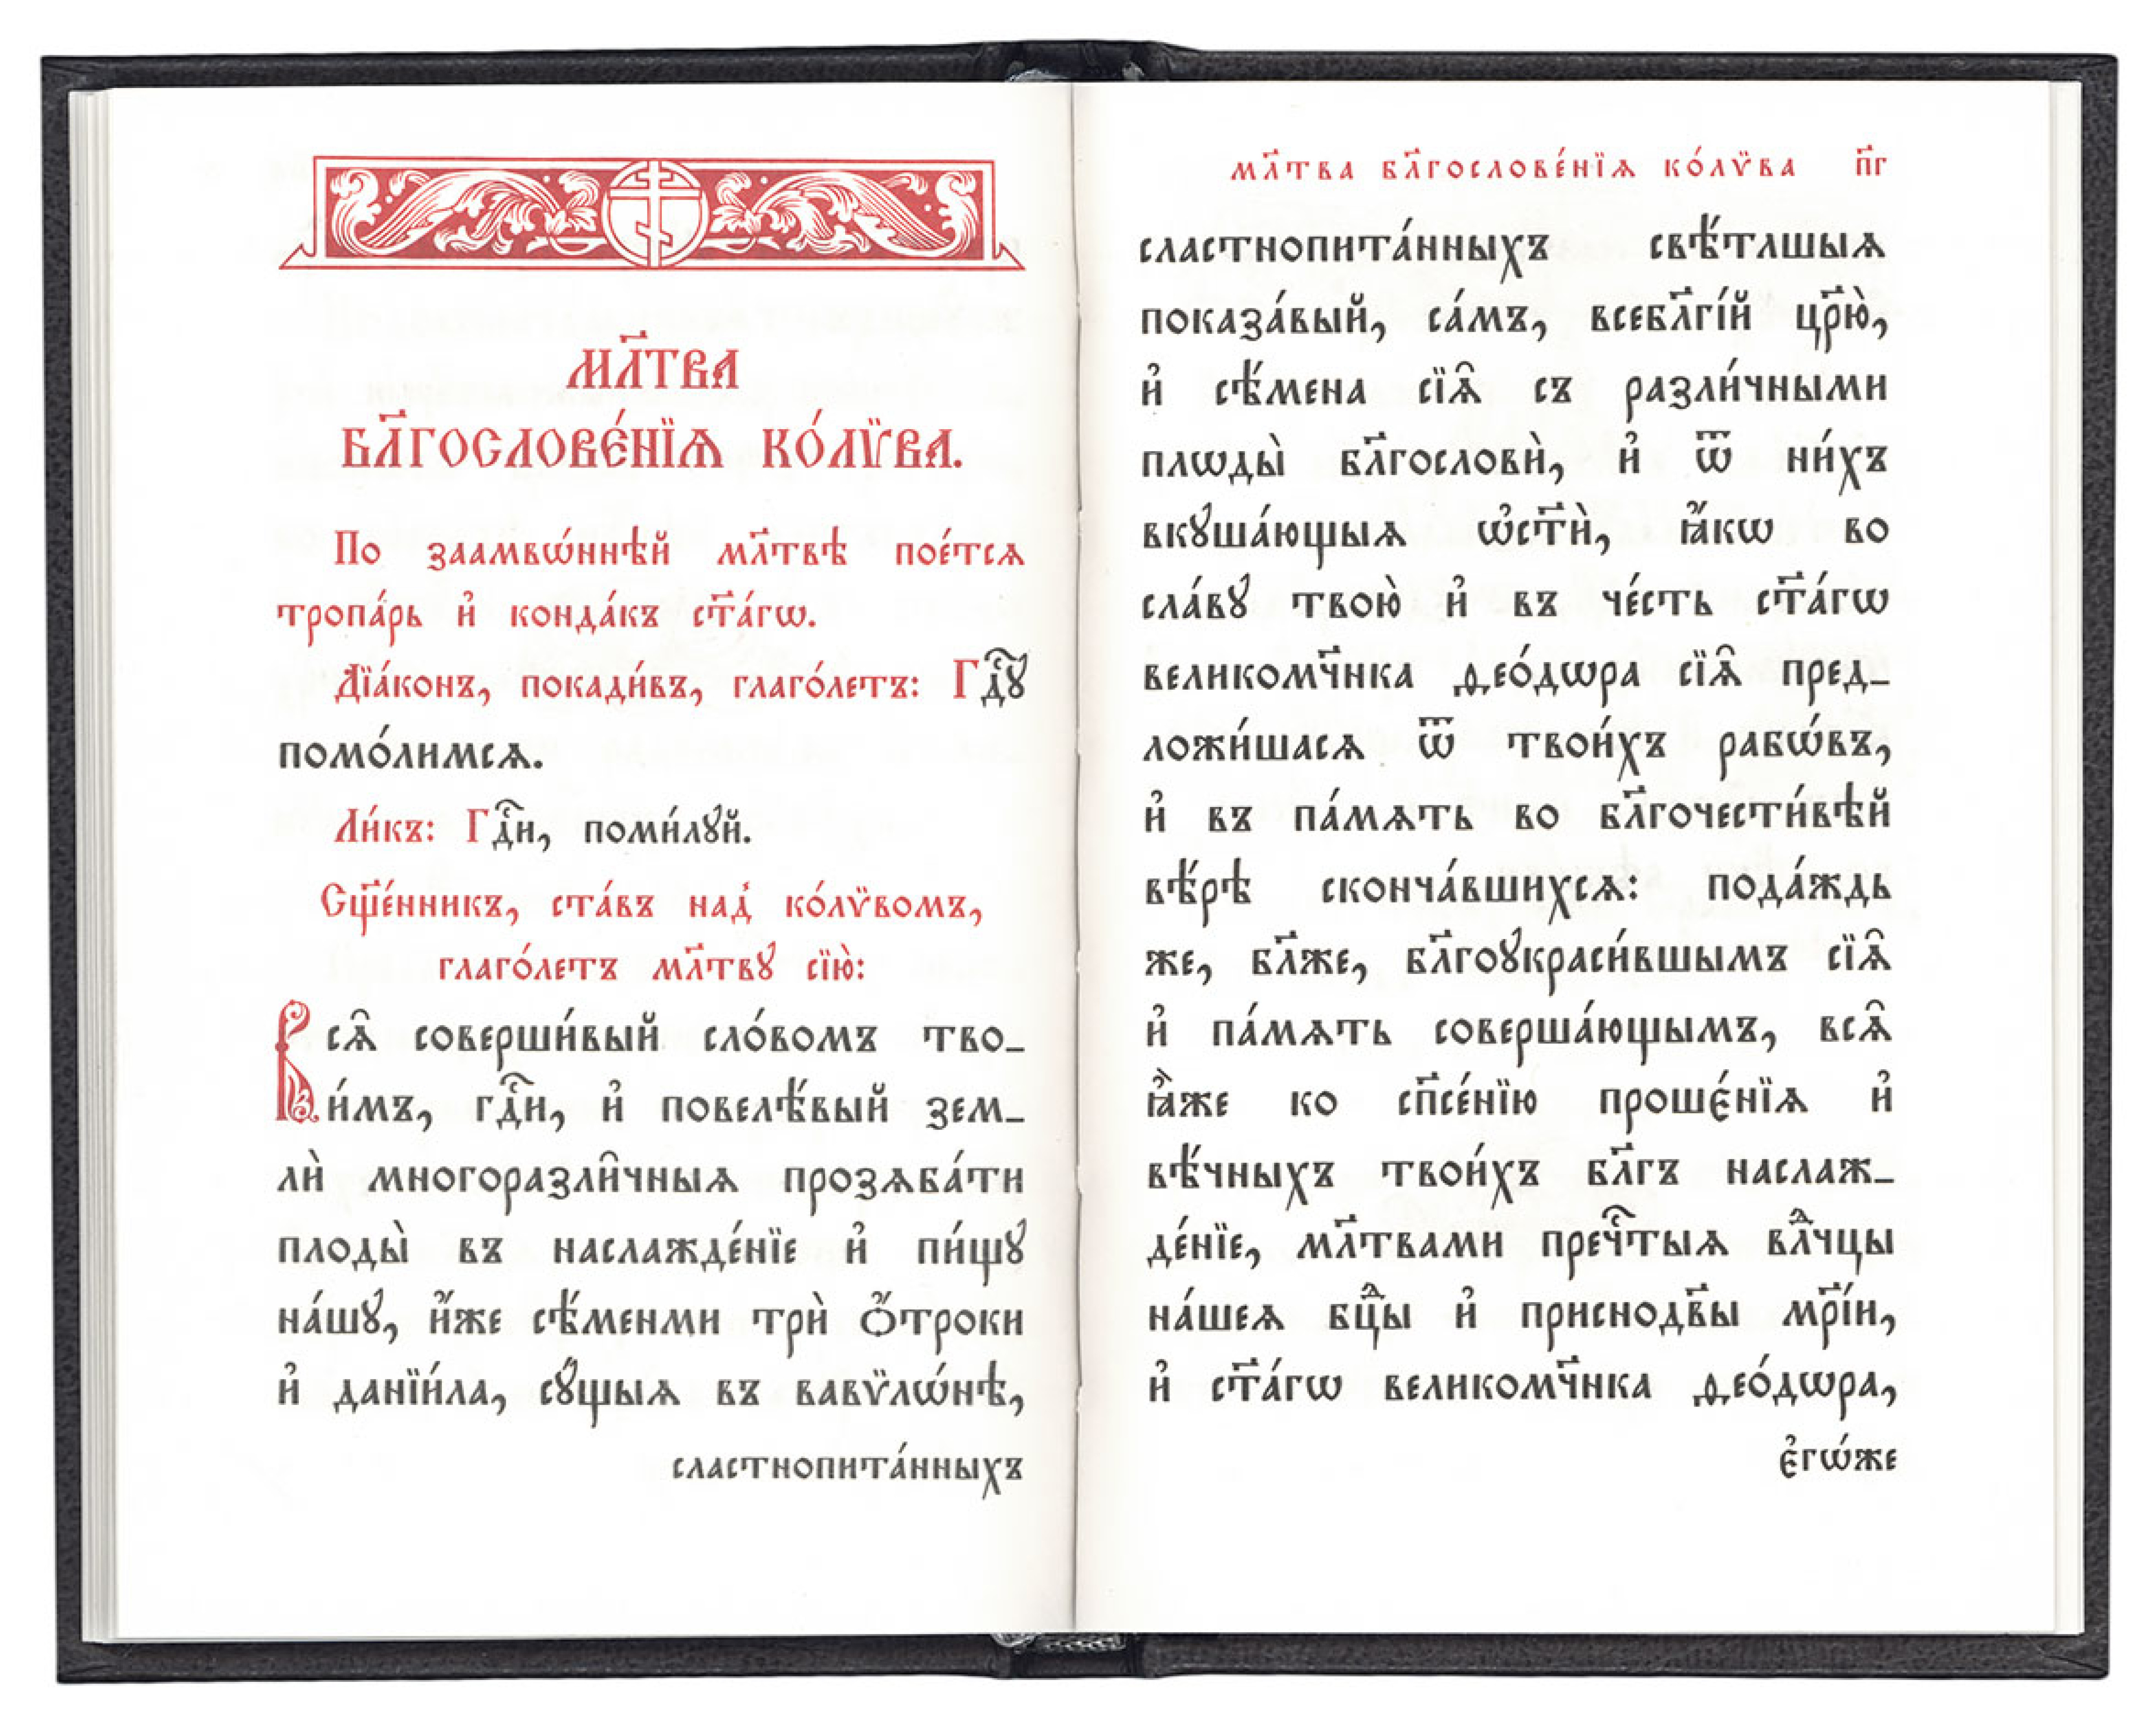 мл҃тва
бл҃гослове́нїѧ ко́лѷва.
По заамвѡ́ннѣй мл҃твѣ пое́тсѧ
тропа́рь и҆ конда́къ ст҃а́гѡ.
Дїа́конъ, покади́въ, глаго́летъ: Гдⷭ҇ꙋ
помо́лимсѧ.
Ли́къ: Гдⷭ҇и, поми́лꙋй.
Сщ҃е́нникъ, ста́въ над̾ ко́лѷвомъ,
глаго́летъ мл҃твꙋ сїю̀:
Всѧ̑ соверши́вый сло́вомъ тво_
и́мъ, гдⷭ҇и, и҆ повелѣ́вый зем_
лѝ многоразли̑чныѧ прозѧба́ти
плоды̀ въ наслажде́нїе и҆ пи́щꙋ
на́шꙋ, и҆́же сѣ́менми трѝ ѻ҆́троки
и҆ данїи́ла, сꙋ́щыѧ въ вавѷлѡ́нѣ,
сластнопита́нныхъ
мл҃тва бл҃гослове́нїѧ ко́лѷва п҃г
сластнопита́нныхъ свѣ́тлшыѧ
показа́вый, са́мъ, всебл҃гі́й цр҃ю̀,
и҆ сѣ́мена сїѧ̑ съ разли́чными
плѡды̀ бл҃гословѝ, и҆ ѿ ни́хъ
вкꙋша́ющыѧ ѡ҆ст҃ѝ, ꙗ҆́кѡ во
сла́вꙋ твою̀ и҆ въ че́сть ст҃а́гѡ
великомч҃нка ѳео́дѡра сїѧ̑ пред_
ложи́шасѧ ѿ твои́хъ рабѡ́въ,
и҆ въ па́мѧть во бл҃гочести́вѣй
вѣ́рѣ сконча́вшихсѧ: пода́ждь
же, бл҃же, бл҃гоꙋкраси́вшымъ сїѧ̑
и҆ па́мѧть соверша́ющымъ, всѧ̑
ꙗ҆̀же ко сп҃се́нїю прошє́нїѧ и҆
вѣ́чныхъ твои́хъ бл҃гъ наслаж_
де́нїе, мл҃твами пречⷭ҇тыѧ влⷣчцы
на́шеѧ бцⷣы и҆ приснодв҃ы мр҃і́и,
и҆ ст҃а́гѡ великомч҃нка ѳео́дѡра,
є҆гѡ́же